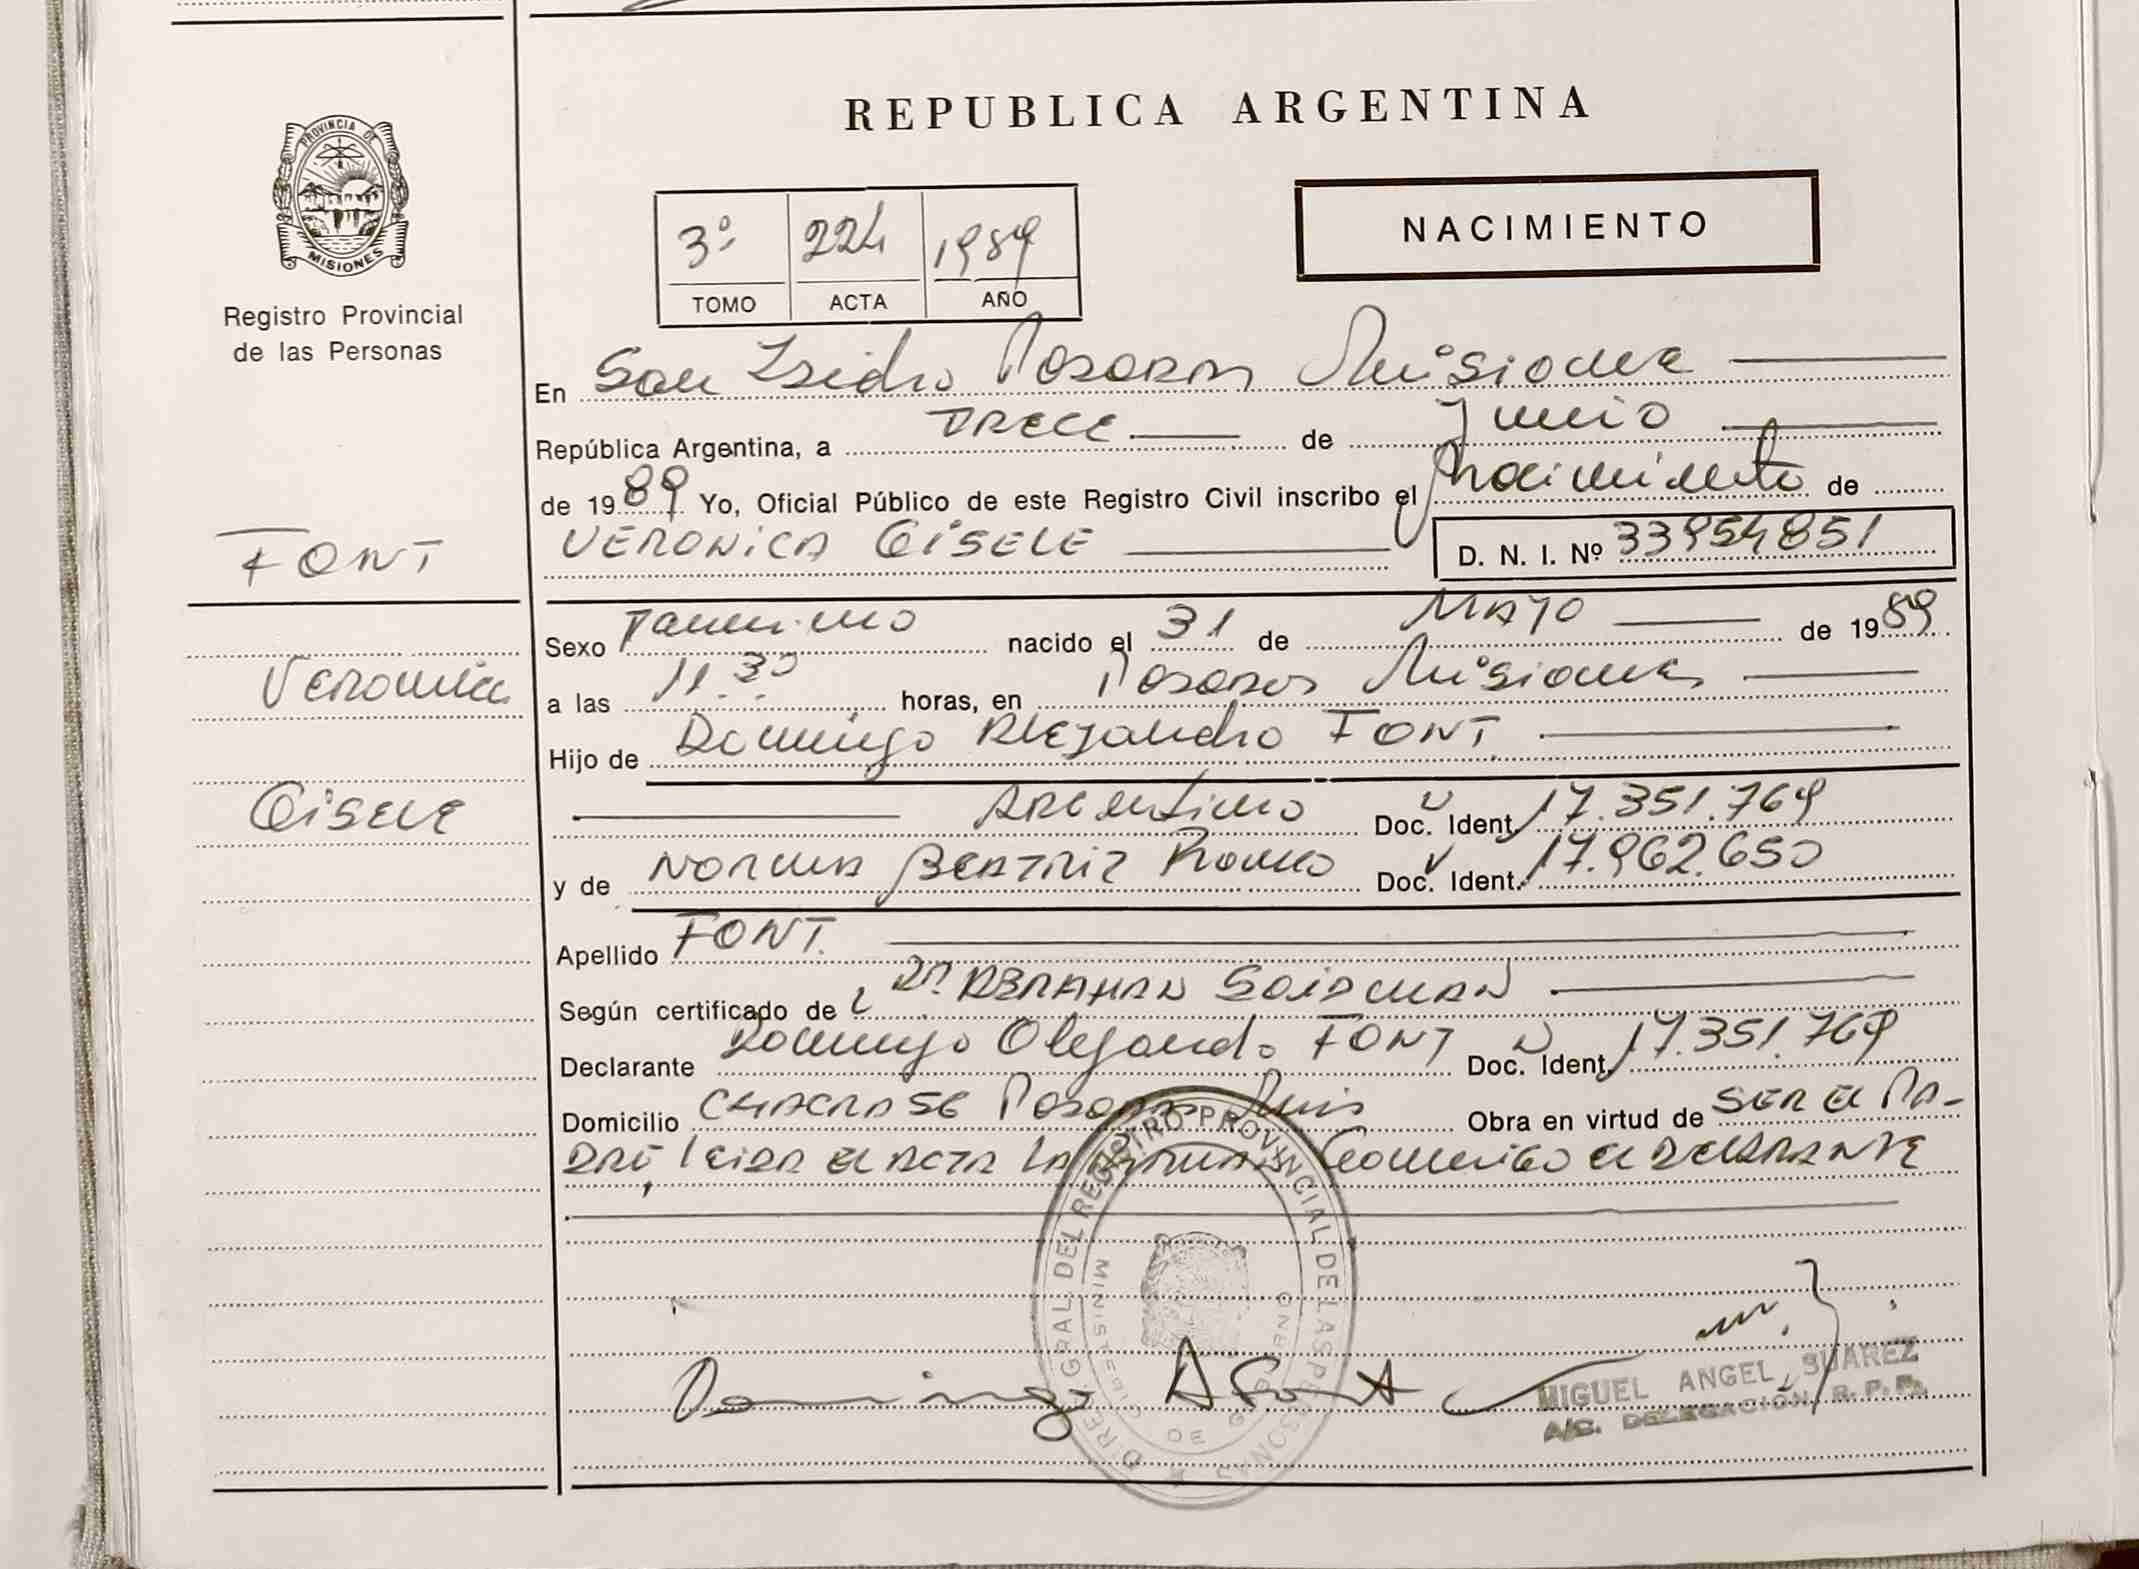 PROVINCIA DE
MISIONES
Registro Provincial
de las Personas
FONT
Veronica
Gisele
REPUBLICA ARGENTINA
NACIMIENTO
3º 224 1989
TOMO ACTA AÑO
En San Isidro Posadas Misiones
República Argentina, a TRECE de Junio
de 1989 Yo, Oficial Público de este Registro Civil inscribo el Nacimiento de
VERONICA GISELE D. N. I. Nº 33954851
Sexo Femenino nacido el 31 de MAYO de 1989
a las 11.30 horas, en Posadas Misiones
Hijo de Domingo Alejandro FONT
Argentino Doc. Ident. 17.351.769
y de Norma Beatriz Doc. Ident. 17.962.650
Apellido FONT.
Según certificado de Dr. ABRAHAN
Declarante Domingo Alejandro FONT Doc. Ident. 17.351.769
Domicilio CHACRA 56 Posadas Mis Obra en virtud de SER EL PA-
DRE, leida el acta la firma conmigo el declarante
DIREC. GRAL DEL REGISTRO PROVINCIAL DE LAS PERSONAS
MINISTERIO DE GOBIERNO
Domingo A Font
MIGUEL ANGEL SUAREZ
A/C. DELEGACIÓN R. P. P.